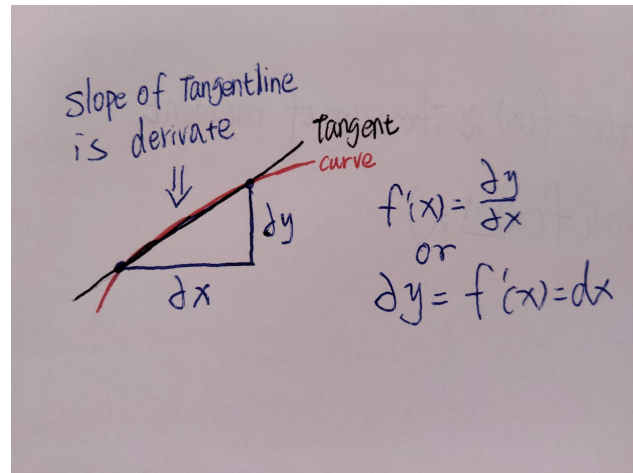 slope of Tangentline
is derivate
Tangent
curve
∂y
∂x
f'(x) = ∂y/∂x
or
∂y = f'(x) = dx